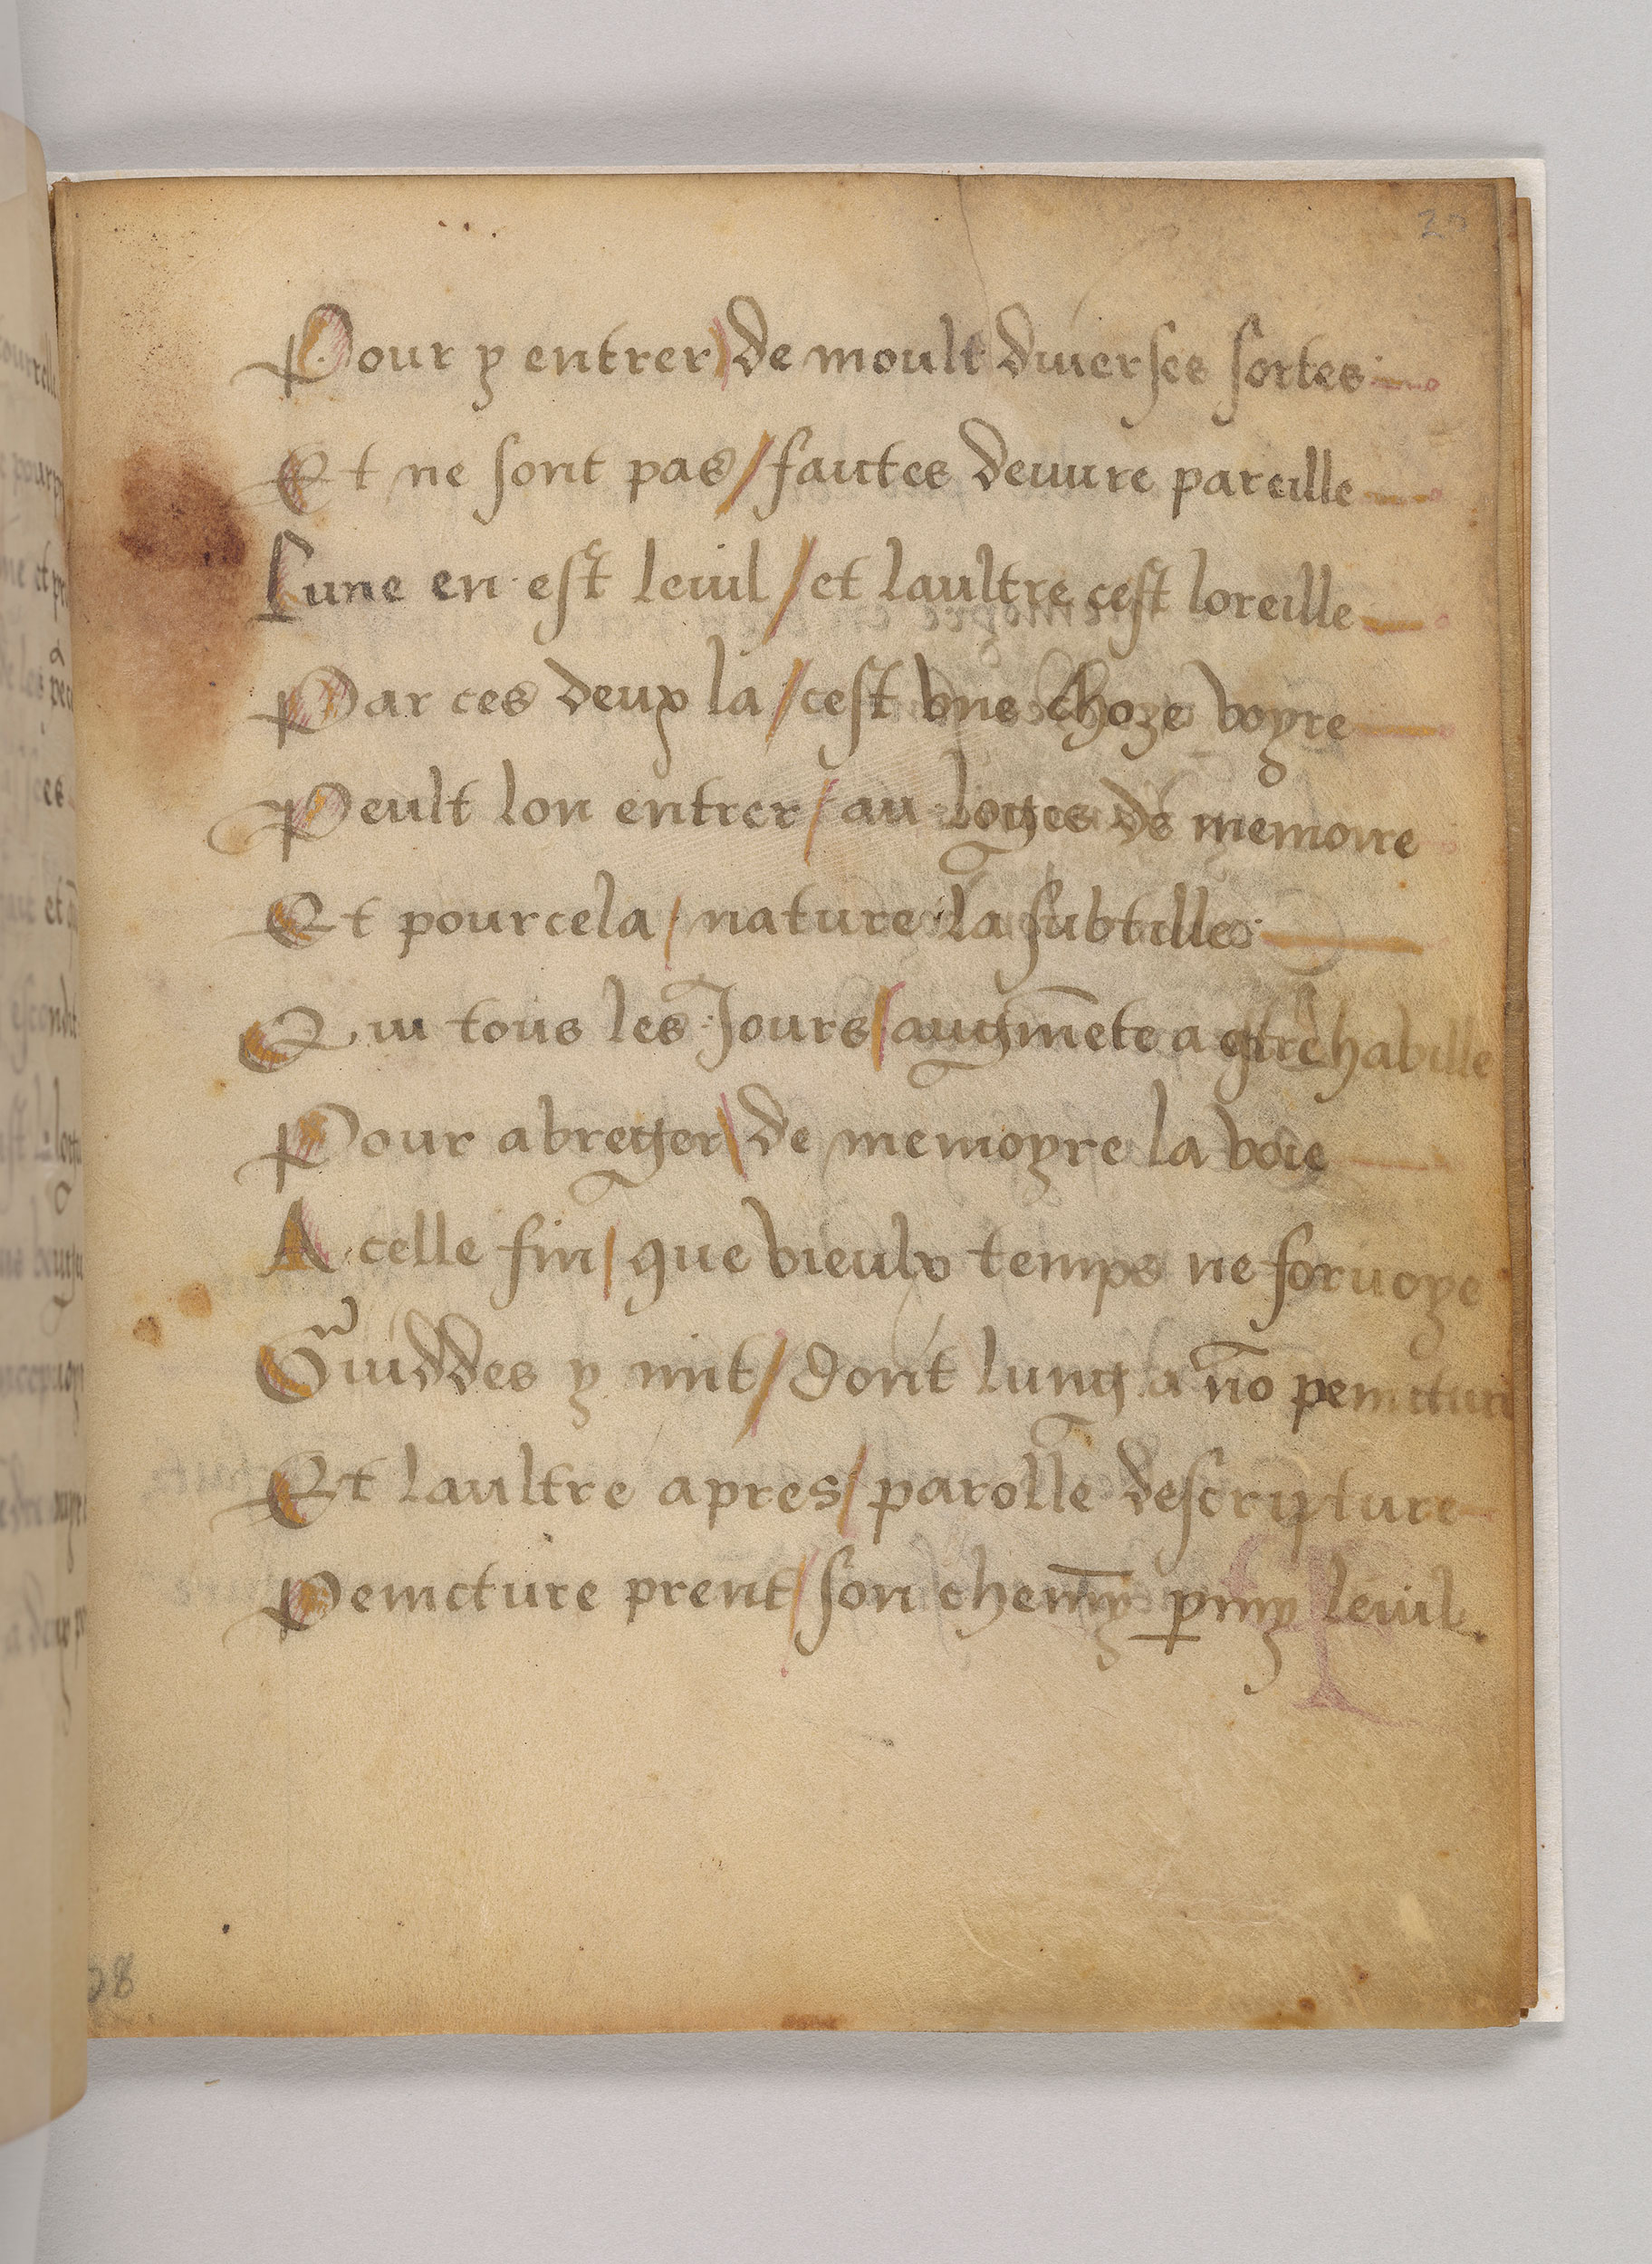 Pour y entrer / de moult diuerses sortes
Et ne sont pas / faites deuure pareille
Lune en est leuil / et laultre cest loreille
Par ces deux la / cest vne choze voyre
Peult lon entrer / au loges de memoire
Et pour cela / nature la subtille
Qui tous les Jours / augmēte a habille
Pour abreger / de memoyre la voie
A celle fin / que vieulx temps ne foruoye
Guiddes y mit / dont lung a nō peinctur
Et laultre apres / parolle descripture
Peincture prent / son chemȳ pmy leuil
28